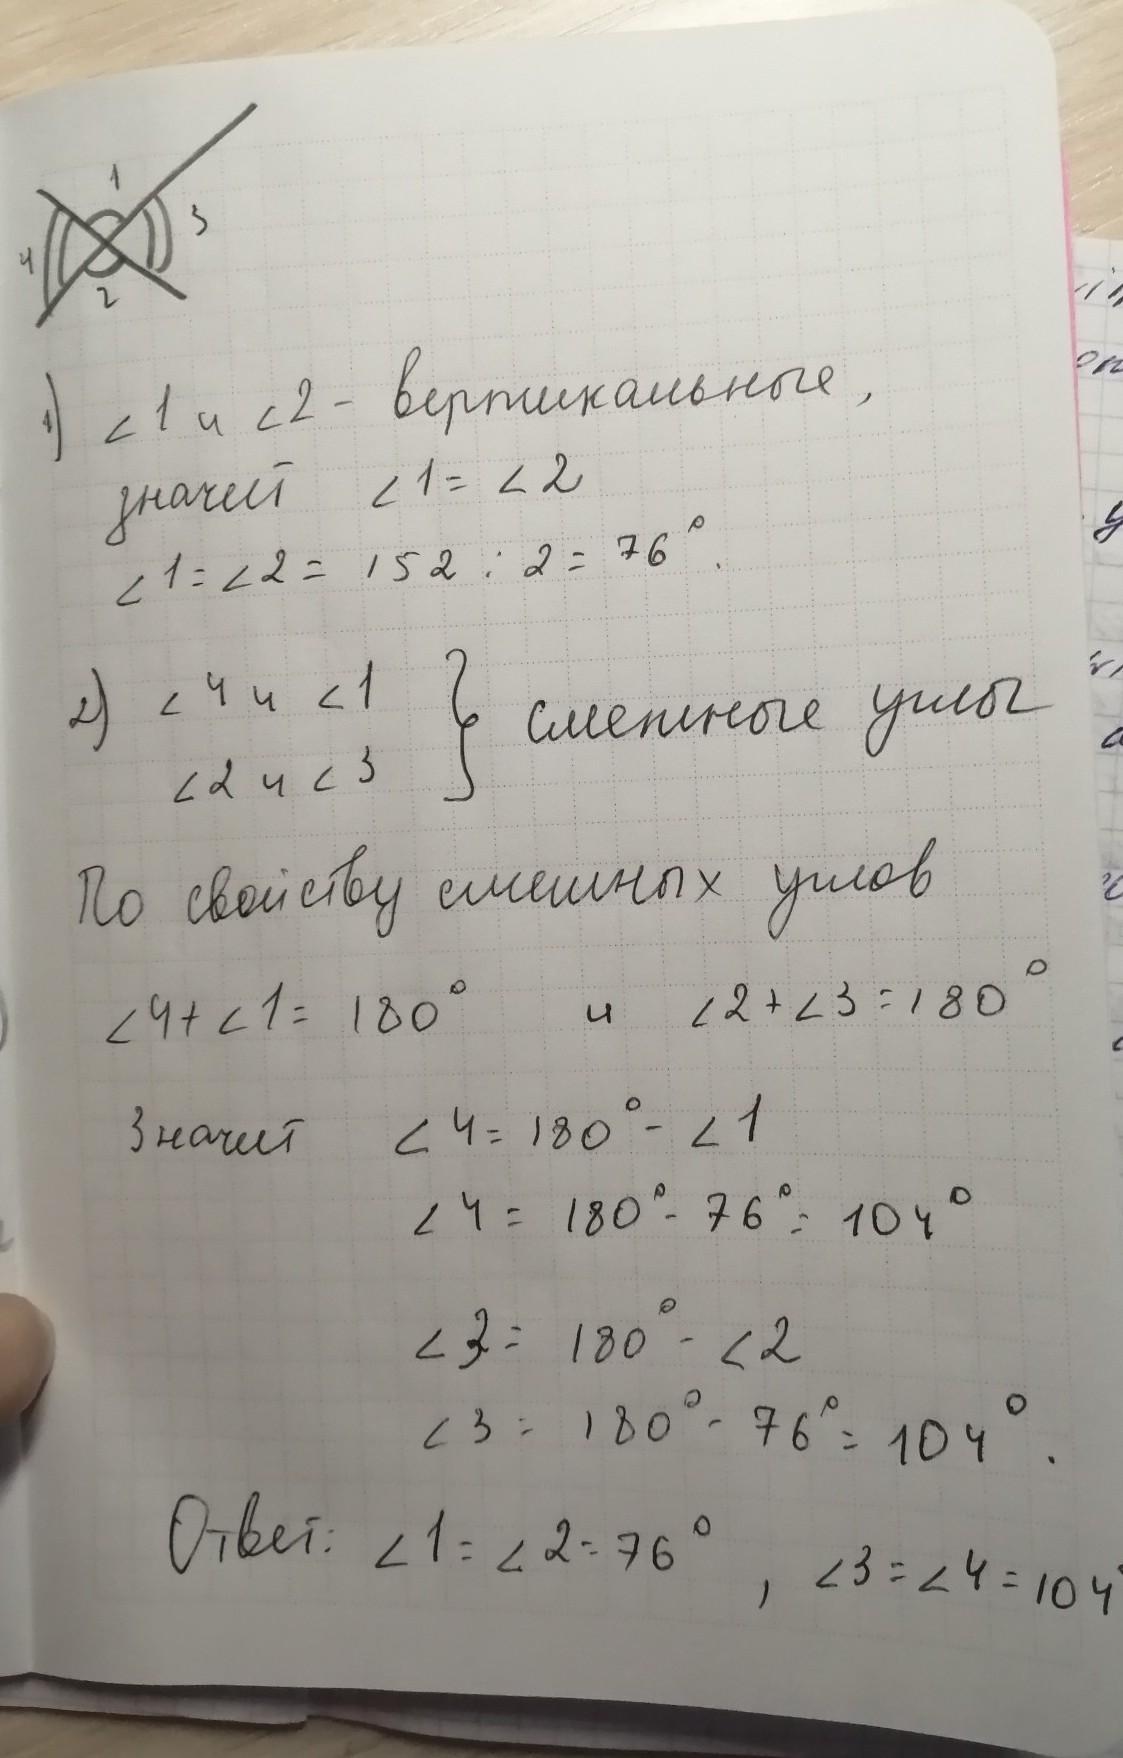 1
3
4
2
1) ∠1 и ∠2 - вертикальные,
значит ∠1 = ∠2
∠1 = ∠2 = 152 : 2 = 76°.
2) ∠4 и ∠1
∠2 и ∠3 } смежные углы
По свойству смежных углов
∠4 + ∠1 = 180° и ∠2 + ∠3 = 180°
Значит ∠4 = 180° - ∠1
∠4 = 180° - 76° = 104°
∠3 = 180° - ∠2
∠3 = 180° - 76° = 104°.
Ответ: ∠1 = ∠2 = 76°, ∠3 = ∠4 = 104°